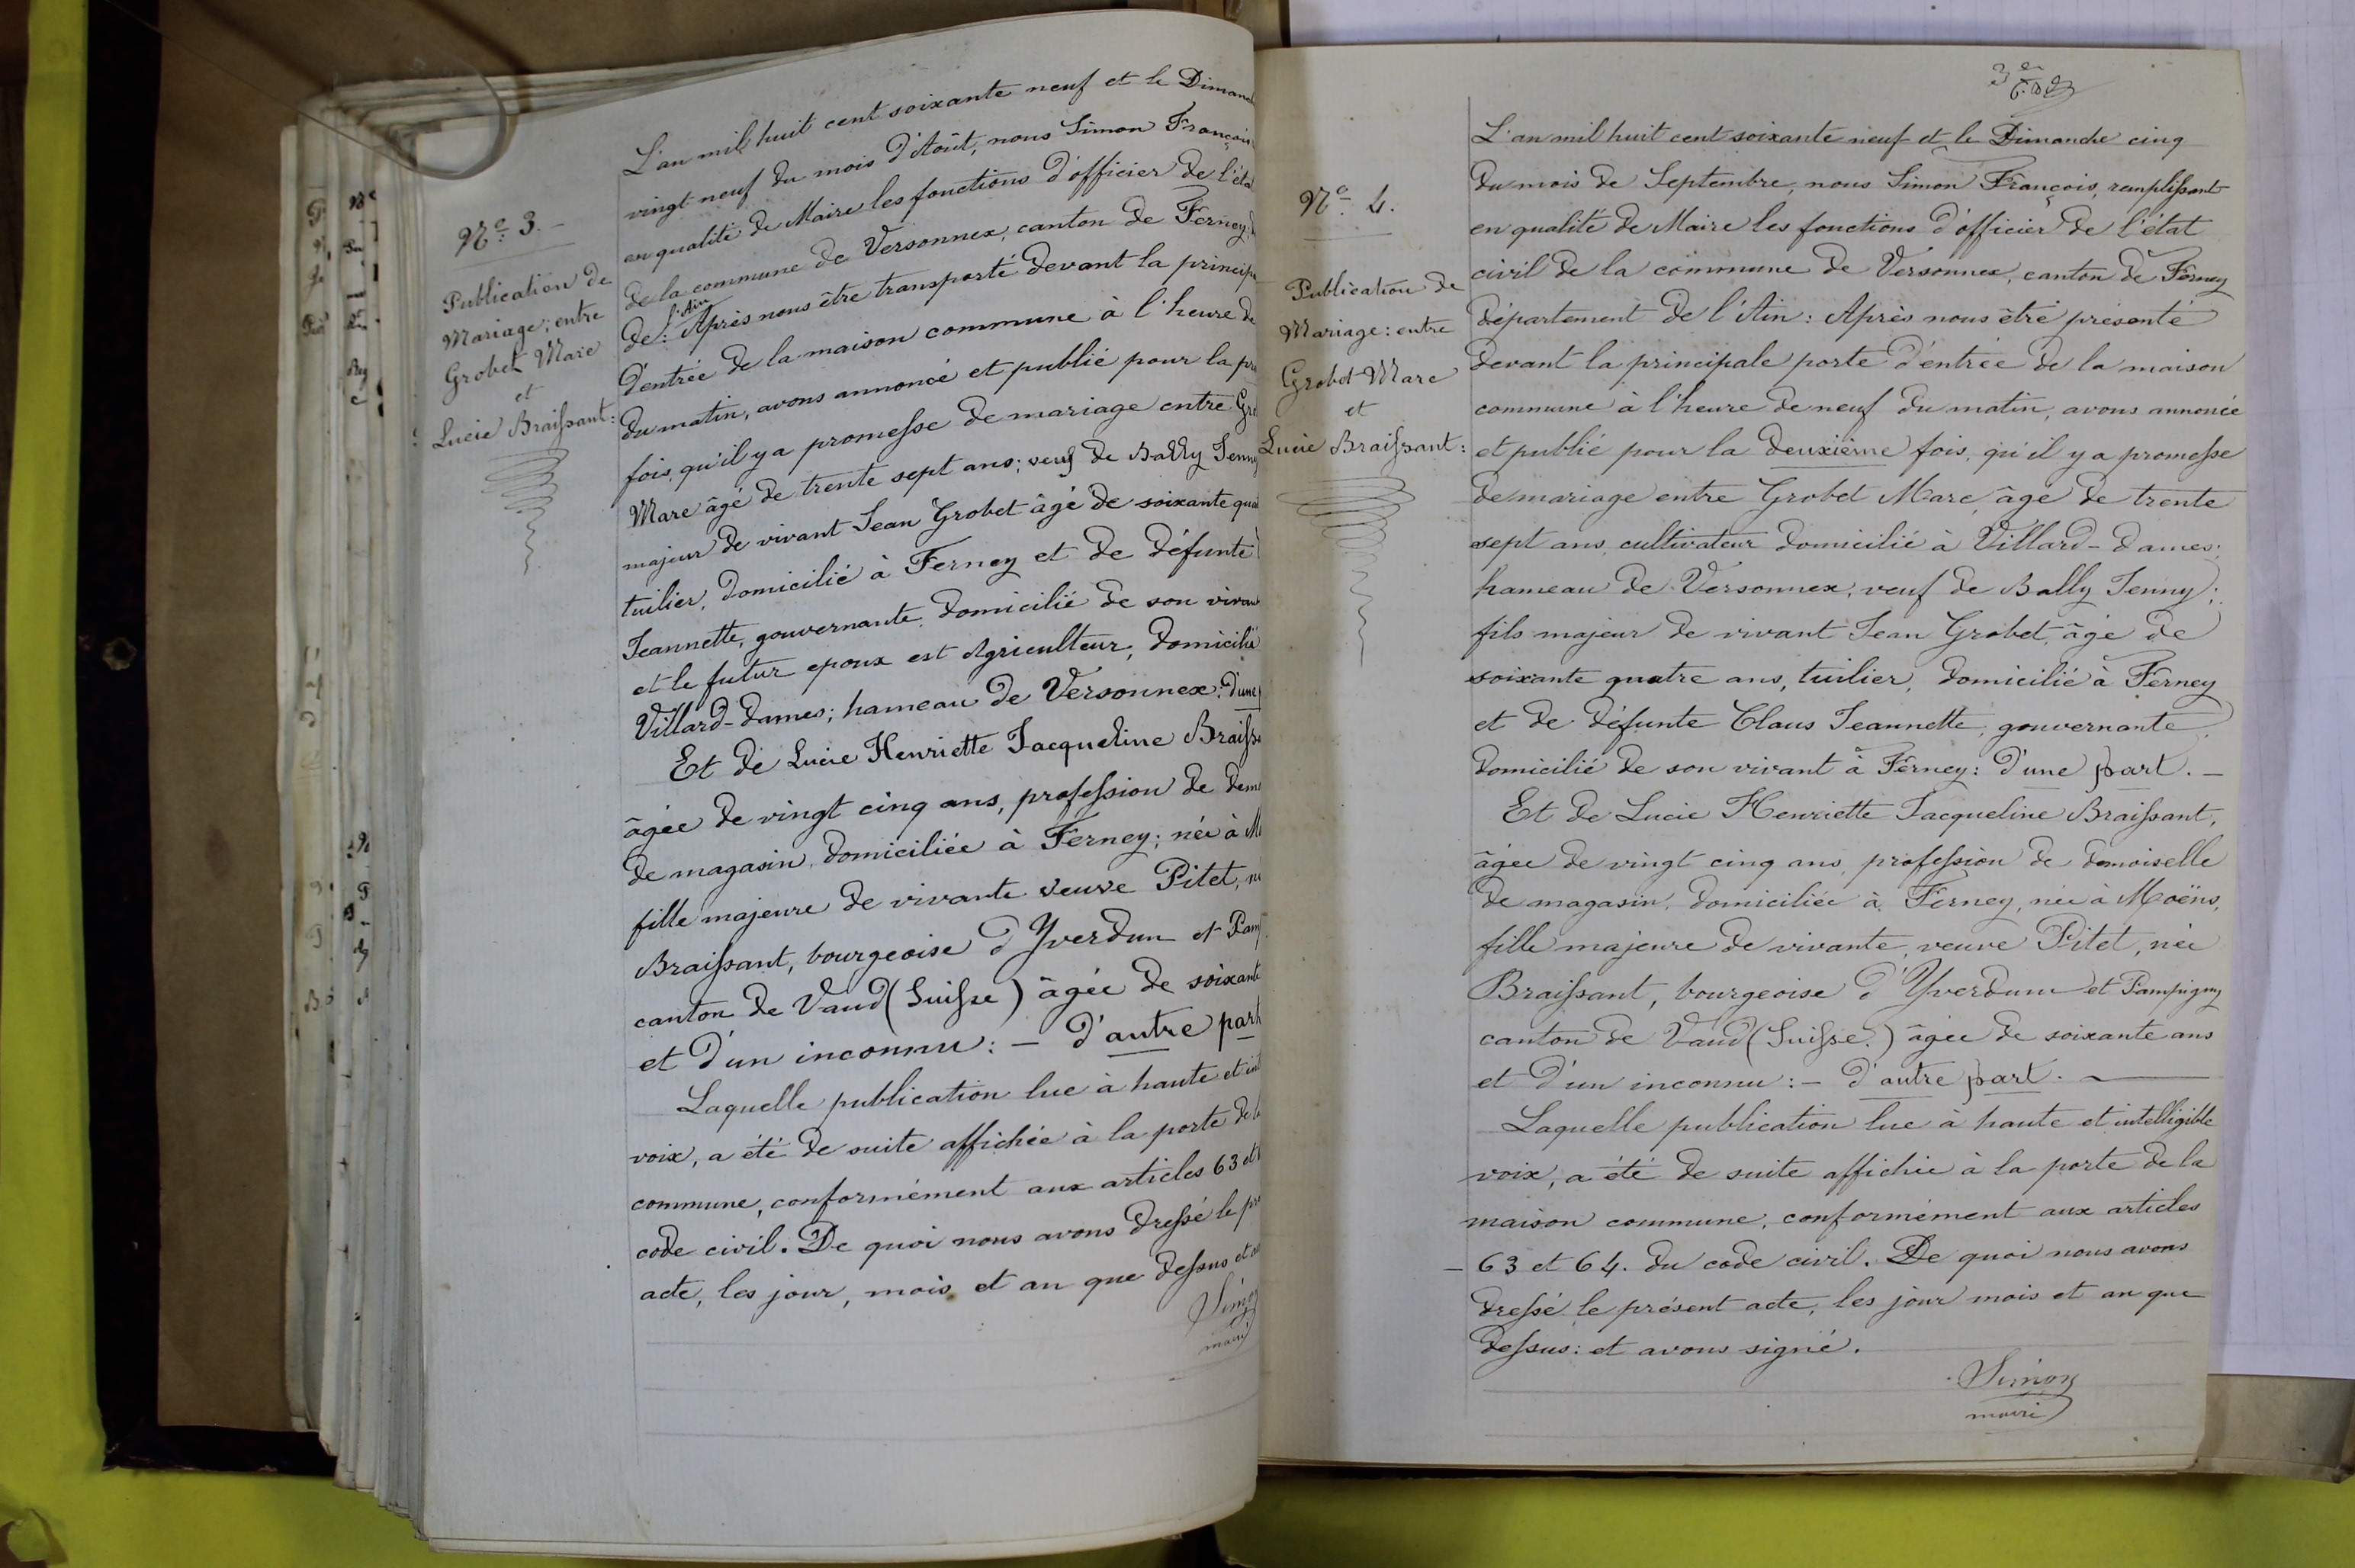 Nº 3.
Publication de
Mariage; entre
Grobet Marc
et
Lucie Braissant:
L'an mil huit cent soixante neuf et le Dimanch
vingt neuf du mois d'Août, nous Simon François
en qualité de Maire les fonctions d'officier de l'éta
de la commune de Versonnex, canton de Ferney,
de l'Ain: Après nous être transporté devant la princip
d'entrée de la maison commune à l'heure de
du matin, avons annoncé et publié pour la pr
fois, qu'il y a promesse de mariage entre Gr
Marc âgé de trente sept ans; veuf de Bally Jenny
majeur de vivant Jean Grobet âgé de soixante qua
tuilier, domicilié à Ferney et de défunte
Jeannette, gouvernante, domicilié de son vivant
et le futur epoux est Agriculteur, domicilié
Villard-Dames; hameau de Versonnex: d'une
Et de Lucie Henriette Jacqueline Braiss
âgée de vingt cinq ans, profession de dem
de magasin, domiciliée à Ferney; née à M
fille majeure de vivante veuve Pitet, n
Braissant, bourgeoise d'Yverdun et Pamp
canton de Vaud (Suisse) âgée de soixante
et d'un inconnu: – d'autre part
Laquelle publication lue à haute et int
voix, a été de suite affichée à la porte de l
commune, conformément aux articles 63 et
code civil. De quoi nous avons dressé le pr
acte, les jour, mois et an que dessus et av
Simon
maire
3e
Nº 4.
Publication de
Mariage: entre
Grobet Marc
et
Lucie Braissant:
L'an mil huit cent soixante neuf et le Dimanche cinq
du mois de Septembre, nous Simon François, remplissant
en qualité de Maire les fonctions d'officier de l'état
civil de la commune de Versonnex, canton de Ferney
département de l'Ain: Après nous être présenté
devant la principale porte d'entrée de la maison
commune à l'heure de neuf du matin, avons annoncé
et publié pour la deuxième fois, qu'il y a promesse
de mariage entre Grobet Marc, âgé de trente
sept ans, cultivateur domicilié à Villard-Dames;
hameau de Versonnex; veuf de Bally Jenny;
fils majeur de vivant Jean Grobet, âgé de
soixante quatre ans, tuilier, domicilié à Ferney
et de défunte Claus Jeannette, gouvernante,
domicilié de son vivant à Ferney: d'une part. –
Et de Lucie Henriette Jacqueline Braissant,
âgée de vingt cinq ans, profession de demoiselle
de magasin, domiciliée à Ferney, née à Moëns,
fille majeure de vivante, veuve Pitet, née
Braissant, bourgeoise d'Yverdun et Pampigny
canton de Vaud (Suisse.) âgée de soixante ans
et d'un inconnu: – d'autre part. —
Laquelle publication lue à haute et intelligible
voix, a été de suite affichée à la porte de la
maison commune, conformément aux articles
– 63 et 64. du code civil. De quoi nous avons
dressé le présent acte, les jour mois et an que
dessus: et avons signé.
Simon
maire